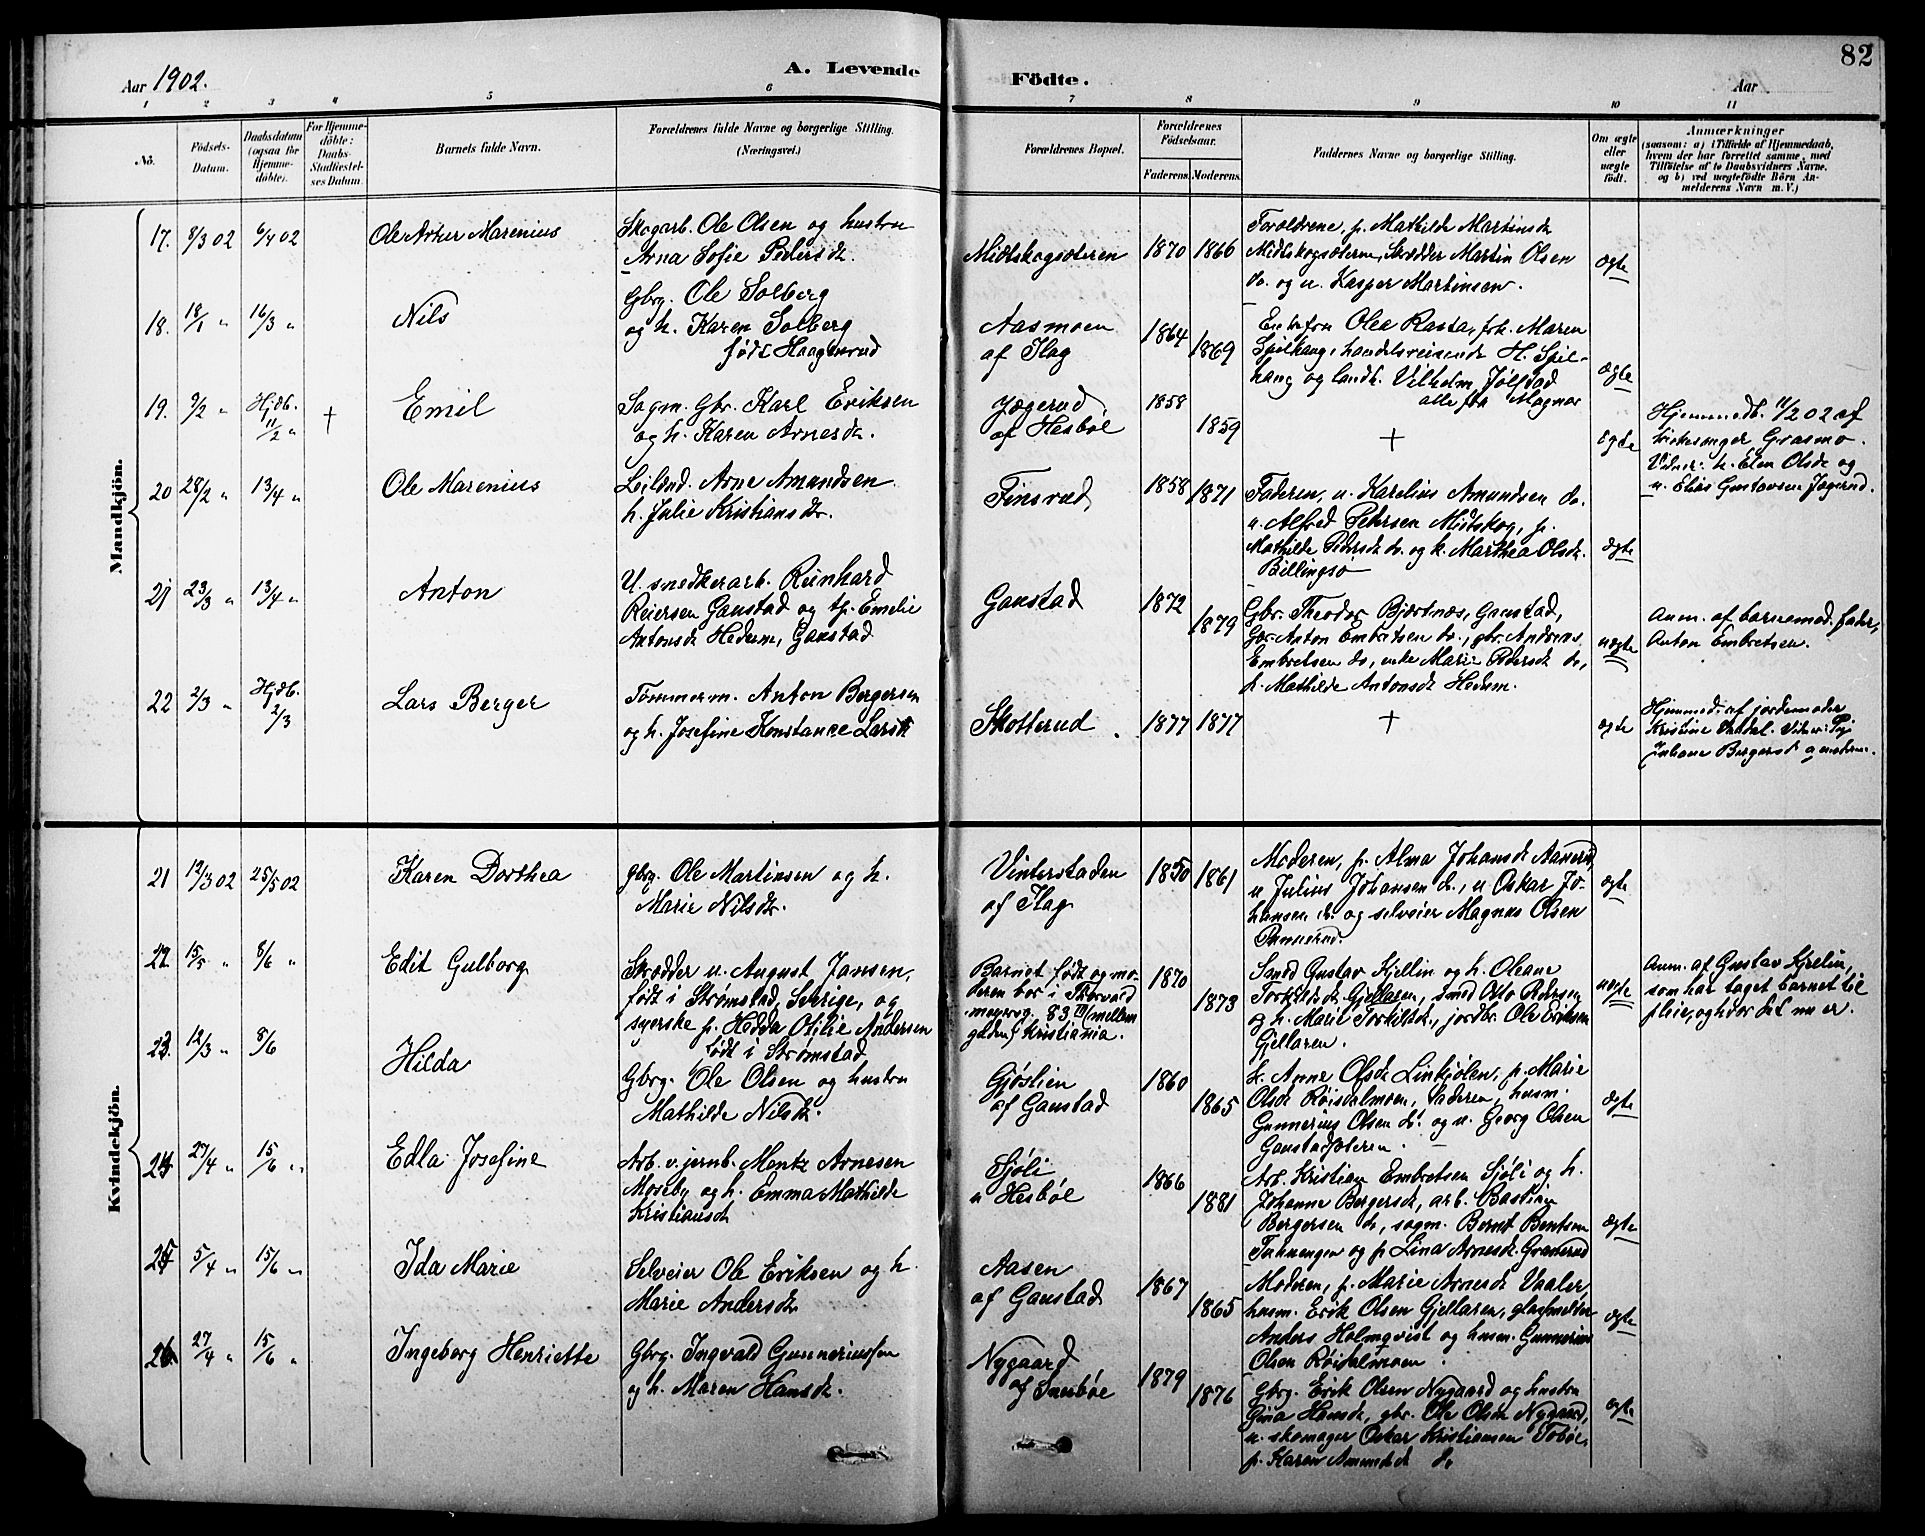 82
Aar 1902.
A. Levende
Födte.
Aar
1 2 3 4 5 6 7 8 9 10 11
No.
Födsels-
Datum.
Daabsdatum
(ogsaa for
Hjemme-
döbte).
For Hjemme-
döbte:
Daabs-
Stadfæstel-
ses Datum.
Barnets fulde Navn.
Forældrenes fulde Navne og borgerlige Stilling.
(Næringsvei.)
Forældrenes Bopæl.
Forældrenes
Födselsaar.
Faderens. Moderens.
Faddernes Navne og borgerlige Stilling.
Om ægte
eller
uægte
födt.
Anmærkninger
(saasom: a) i Tilfælde af Hjemmedaab,
hvem der har forrettet samme, med
Tilföielse af to Daabsvidners Navne.
og b) ved uægtefödte Börn An-
melderens Navn m. V.)
Mandkjön.
17. 8/3 02 6/4 02
Ole Arthur Marenius
Skogarb. Ole Olsen og hustru
Arna Sofie Pedersdr.
Midtskogsæteren
1870 1866
Forældrene, p. Mathilde Martinsdr
Midtskogsæteren, Skrædder Martin Olsen
do. og u. Kasper Martinsen.
ægte
18. 18/1 " 16/3 "
Nils
Gbrg. Ole Solberg
og h. Karen Solberg
født Haagenrud
Aasmoen
af Ilag
1864 1869
Enkefru Olea Rasta, frk. Maren
Spilhaug, handelsreisende H. Spil-
haug og landh. Vilhelm Jølstad
alle fra Magnor
ægte
19. 9/2 " Hjdb.
11/2 " †
Emil
Sagm. Gbr. Karl Eriksen
og h. Karen Arnesdr.
Jægerud
af Hesbøl
1858 1859
†
ægte
Hjemmedb. 11/2 02 af
kirkesanger Grasmo.
Vidner: h. Elen Olsdr og
u. Elias Gustavsen Jægerud.
20 28/2 " 13/4 "
Ole Marenius
Leilænd. Arne Amundsen
h. Julie Kristiansdr.
Finsrud
1858 1871
Faderen, u. Karelius Amundsen do.
u. Alfred Pehrsen Midtskog, p.
Mathilde Pedersdr do. og k. Marthea Olsdr.
Billingsø
ægte
21 23/3 " 13/4 "
Anton
U. snedkerarb. Reinhard
Reiersen Gaustad og tp. Emelie
Antonsdr Hedum, Gaustad
Gaustad
1872 1879
Gbr. Theodor Bjørtnæs, Gaustad,
Gbr. Anton Embretsen do., gbr. Andreas
Embretsen do, enke Marie Pedersdr do,
h. Mathilde Antonsdr Hedum.
uægte
Anm. af barnemod. fader,
Anton Embretsen.
22 2/3 " Hjdb.
2/3
Lars Berger
Tømmerm. Anton Bergersen
og h. Josefine Konstance Larsdr
Skotterud.
1877 1877
†
ægte
Hjemmed. af jordemoder
Kristine Vaadal. Vidner: Pige
Johane Bergersdr
Kvindekjön.
21 12/3 02 25/5 02
Karen Dorthea
gbrg. Ole Martinsen og h.
Marie Nilsdr.
Vinterstaden
af Ilag
1850 1861
Moderen, p. Alma Johansdr Aanerud,
u Julius Johansen do., u Oskar Jo-
hansen do. og selveier Magnus Olsen
ægte
22. 15/5 " 8/6 "
Edit Gulborg
Skrædder u. August Jansen,
født i Strømstad, Sverige, og
syerske p. Hedda Otilie Andersen
født i Strømstad
Barnet født og mo-
deren bor i Thorvald
meyersg. 83 IV (mellem
gaden) Kristiania.
1870 1873
Smed Gustav Kjellin og h. Oleane
Torkildsdr. Gjellaren, smed Otto Pedersen
og h. Marie Torkildsdr., jordbr. Ole Eriksen
Gjellaren.
uægte
Anm. af Gustav Kjelin,
som har taget barnet til
pleie, og hvor det nu er.
23. 12/3 " 8/6
Hilda
Gbrg. Ole Olsen og hustru
Mathilde Nilsdr.
Gjøslien
af Gaustad
1860 1865
k. Anne Olsdr Linkjølen, p. Marie
Olsdr Røisdalmoen, faderen, husm.
Gunnerius Olsen do. og u. Georg Olsen
Gaustadsæteren.
ægte
24 27/4 " 15/6 "
Edla Josefine
Arb. v. jernb. Mentz Arnesen
Moseby og h. Emma Mathilde
Kristiansdr
Sjøli
u Hesbøl
1866 1881
Arb. Kristian Embretsen Sjøli og h.
Johanne Bergersdr, arb. Bastian
Bergersen do, sagm. Bernt Bentsen
og p Lina Arnesdr. Granerud
ægte
25 5/4 " 15/6 "
Ida Marie
Selveier Ole Eriksen og h.
Marie Andersdr
Aasen
af Gaustad
1867 1865
Moderen, p. Marie Arnesdr Vaaler,
husm. Erik Olsen Gjellaren, glasmelter
Anders Holmqvist og husm. Gunnerius
Olsen Røisdalmoen.
ægte
26 27/4 " 15/6 "
Ingeborg Henriette
Gbrg. Ingvald Gunneriussen
og h. Maren Hansdr.
Nygaard
af Snesbøl
1879 1876
Gbrg. Erik Olsen Nygaard og hustru
Gina Hansdr, gbr. Ole Olsen Nygaard,
u. skomager Oskar Kristiansen Tobøl,
p. Karen Amundsdr do
ægte